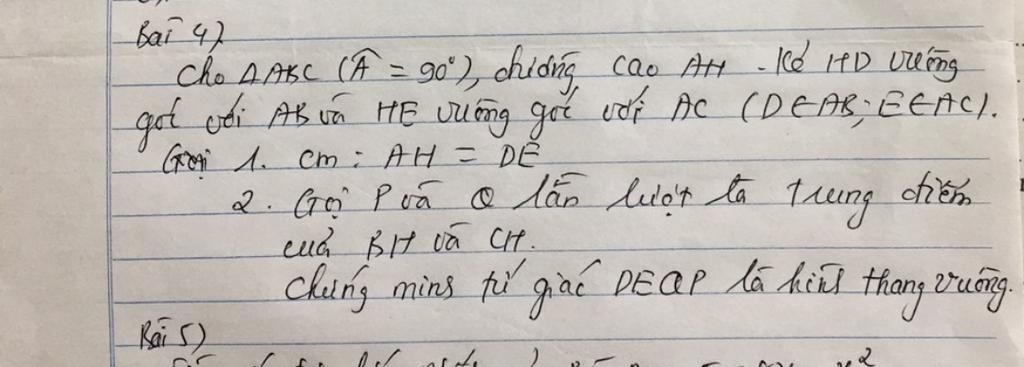 Bài 4)
Cho ΔABC (Â = 90°), đường cao AH. Kẻ HD vuông
góc với AB và HE vuông góc với AC (D∈AB; E∈AC).
Gọi 1. Cm: AH = DE
2. Gọi P và Q lần lượt là trung điểm
của BH và CH.
Chứng minh tứ giác DEQP là hình thang vuông.
Bài 5)